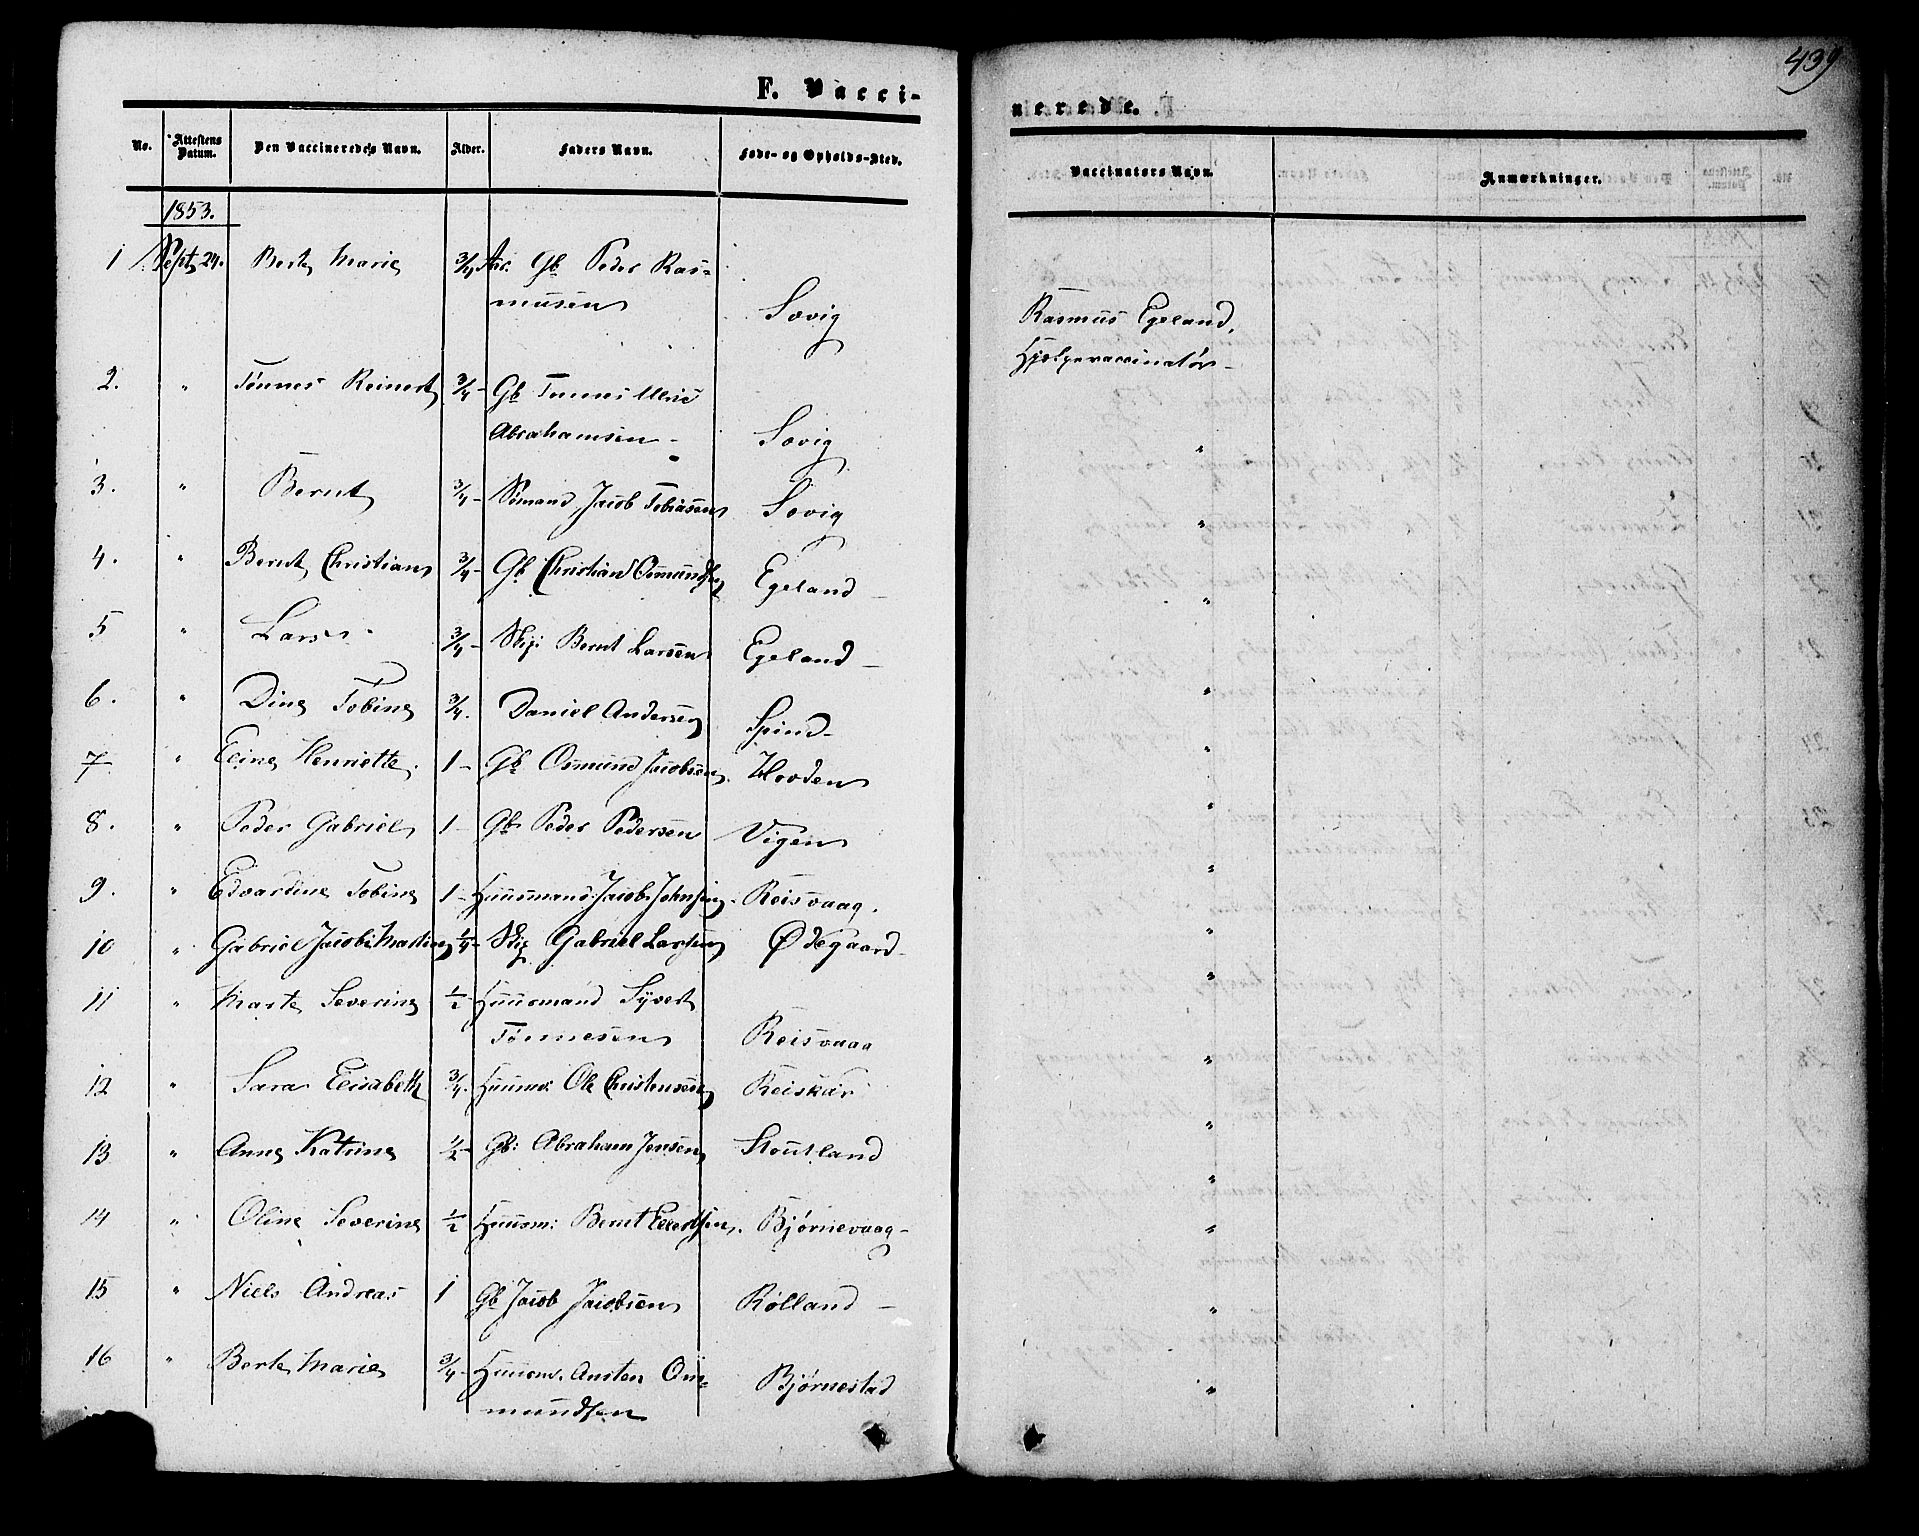 439
F. Vacci-
nerede.
No. Attestens Datum. Den Vaccineredes Navn. Alder. Faders Navn. Føde- og Opholds-Sted.
Vaccinators Navn. Anmærkninger.
1853.
1 Sept. 24. Berte Marie 3/4 Aar. Gb Peder Ras-
musen Sovig
Rasmus Egeland,
Hjelpevaccinatør
2. " Tønnes Reinert 3/4 - Gb Tønnes Ulric
Abrahamsen - Sovig "
3. " Bernt 3/4 - Sømand Jacob Tobiasen Sovig "
4. " Bernt Christian 3/4 - Gb Christian Osmundsen Egeland - "
5 " Lars 3/4 - Skip: Bernt Larsen Egeland - "
6. " Dine Tobine 3/4. Daniel Andersen Spind - "
7. " Eline Henriette. 1 - Gb Osmund Jacobsen. Hovden "
8. " Peder Gabriel 1 - Gb Peder Pedersen Vigen "
9. " Edvardine Tobine 1 - Huusmand Jacob Johnsen. Reisvaag. "
10 " Gabriel Jacob Martin 1/4 - Skip Gabriel Larsen Ødegaard - "
11 " Marte Severine 1/2 - Huusmand Syvert
Tønnesen Reisvaag "
12 " Sara Elisabeth 3/4. Huusm: Ole Christensen Reiskar "
13 " Anne Katrine 1/2 - Gb: Abraham Jensen Stoutland "
14 " Oline Severine 1/2 Huusm: Bernt Ellertsen. Bjørnevaag - "
15 " Niels Andreas 1 Gb Jacob Jacobsen Rølland - "
16 " Berte Marie 3/4 - Huusm. Austen Os-
mundsen Bjørnestad "